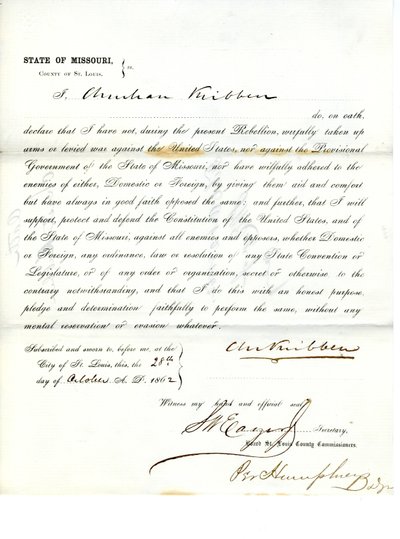 STATE OF MISSOURI,
COUNTY OF ST. LOUIS. } ss.
I, Christian Kribben
do, on oath,
declare that I have not, during the present Rebellion, wilfully taken up
arms or levied war against the United States, nor against the Provisional
Government of the State of Missouri, nor have wilfully adhered to the
enemies of either, Domestic or Foreign, by giving them aid and comfort
but have always in good faith opposed the same; and further, that I will
support, protect and defend the Constitution of the United States, and of
the State of Missouri, against all enemies and opposers, whether Domestic
or Foreign, any ordinance, law or resolution of any State Convention or
Legislature, or of any order or organization, secret or otherwise to the
contrary notwithstanding, and that I do this with an honest purpose,
pledge and determination faithfully to perform the same, without any
mental reservation or evasion whatever.
Subscribed and sworn to, before me, at the
City of St. Louis, this, the 28th
day of October A. D. 1862
Chr Kribben
Witness my hand and official seal
Secretary,
Board St. Louis County Commissioners.
Per